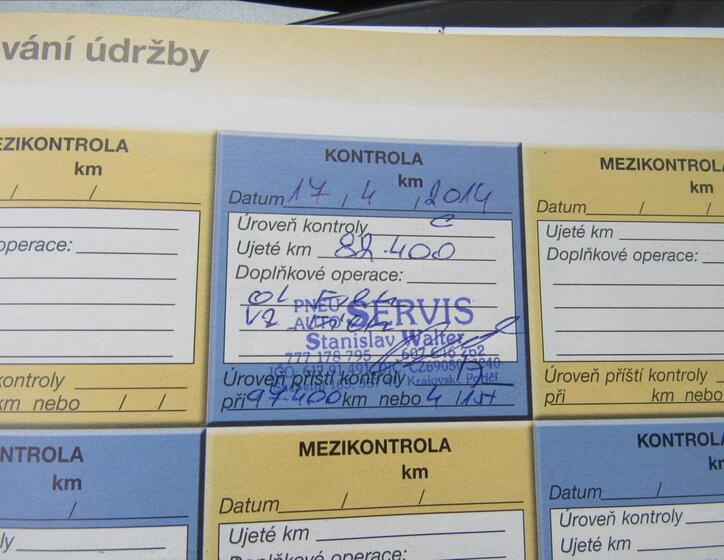 ování údržby
EZIKONTROLA
km
/ /
operace:
kontroly
km nebo / /
KONTROLA
km
Datum 17 / 4 / 2014
Úroveň kontroly C
Ujeté km 82.400
Doplňkové operace:
PNEU SERVIS
AUTO
Stanislav Walter
777 178 795
Úroveň příští kontroly
při 97.400 km nebo 4 / 15
MEZIKONTROLA
km
Datum / /
Ujeté km
Doplňkové operace:
Úroveň příští kontroly
při km nebo
NTROLA
km
/
ly
MEZIKONTROLA
km
Datum / /
Ujeté km
Doplňkové operace:
KONTROLA
km
Datum /
Úroveň kontroly
Ujeté km